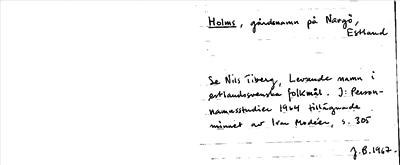 Holms, gårdsnamn på Nargö,
Estland
Se Nils Tiberg, Levande namn i
estlandssvenska folkmål. I: Person-
namnsstudier 1964 tillägnade
minnet av Ivar Modéer, s. 305
J.B.1967.